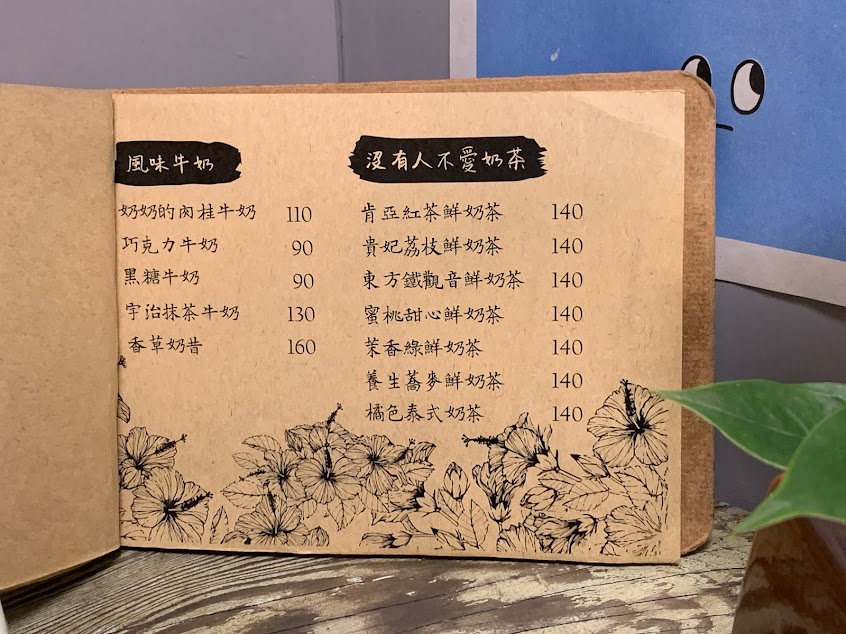 風味牛奶
奶奶的肉桂牛奶 110
巧克力牛奶 90
黑糖牛奶 90
宇治抹茶牛奶 130
香草奶昔 160
沒有人不愛奶茶
肯亞紅茶鮮奶茶 140
貴妃荔枝鮮奶茶 140
東方鐵觀音鮮奶茶 140
蜜桃甜心鮮奶茶 140
茉香綠鮮奶茶 140
養生蕎麥鮮奶茶 140
橘色泰式奶茶 140